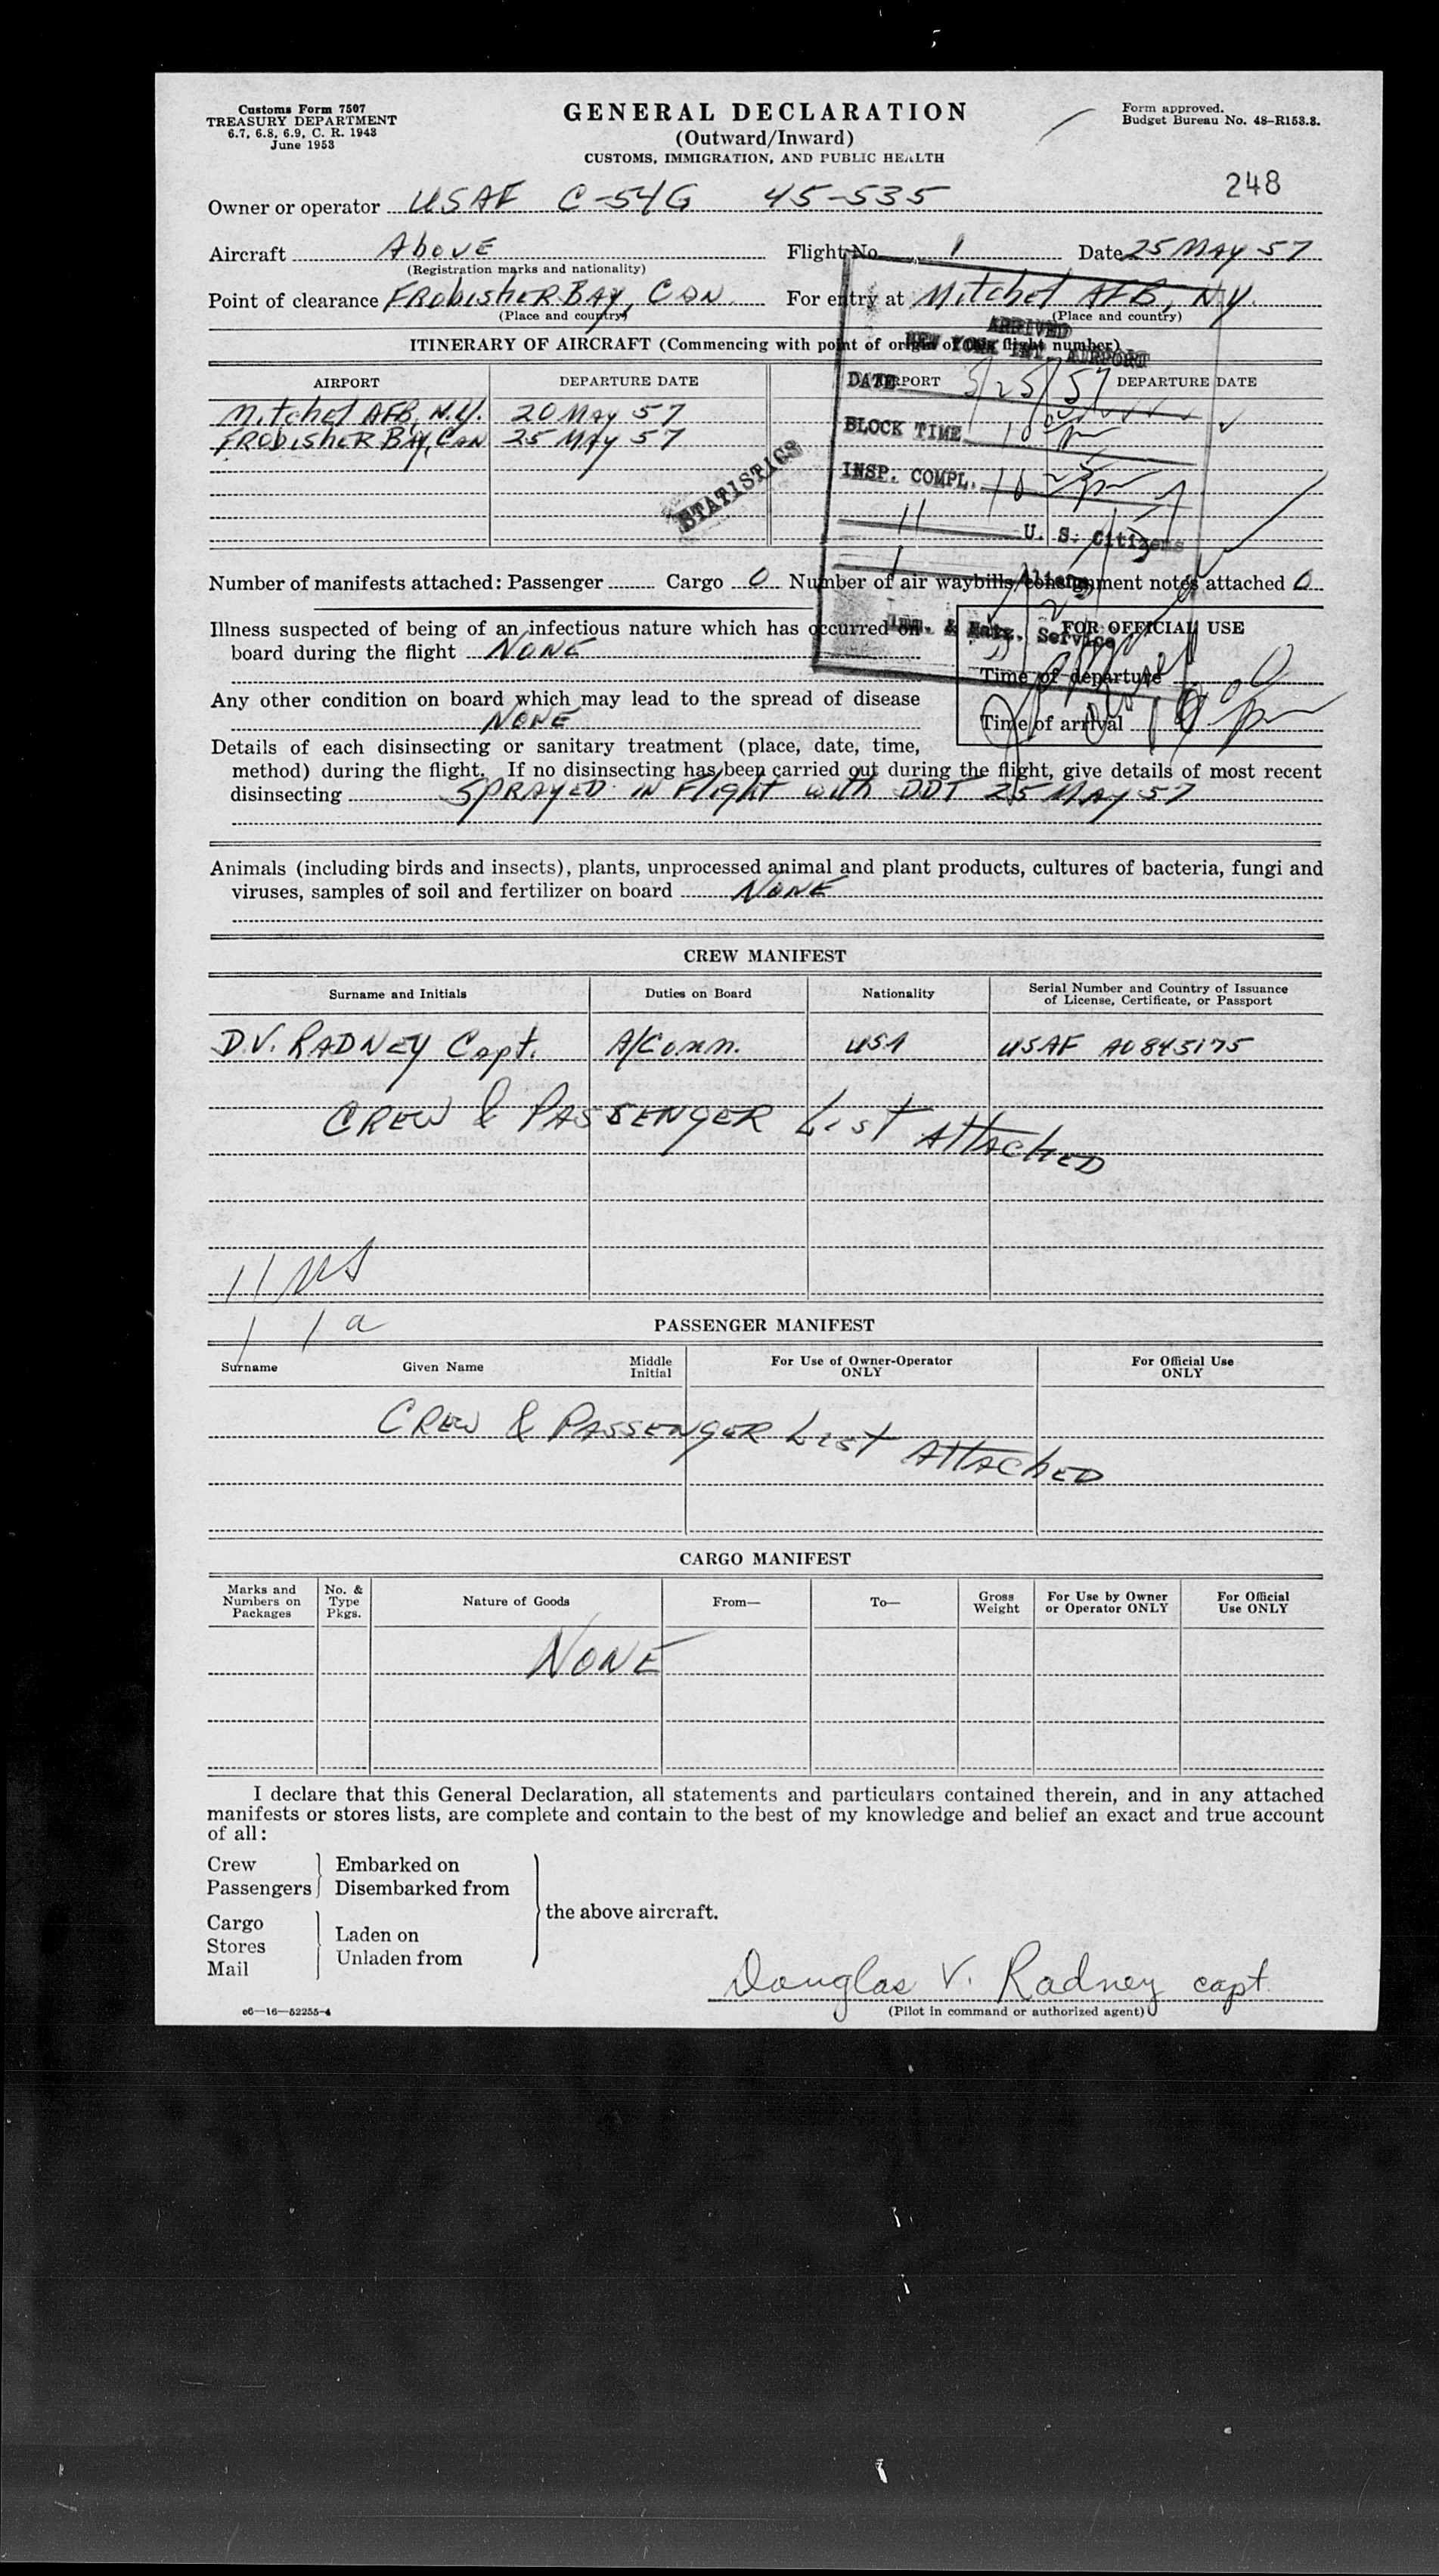 Customs Form 7507
TREASURY DEPARTMENT
6.7, 6.8, 6.9, C. R. 1943
June 1953
GENERAL DECLARATION
(Outward/Inward)
CUSTOMS, IMMIGRATION, AND PUBLIC HEALTH
Form approved.
Budget Bureau No. 48-R153.3.
248
Owner or operator USAF C-54G 45-535
Aircraft Above Flight No. 1 Date 25 May 57
(Registration marks and nationality)
Point of clearance FROBISHER BAY, CAN For entry at Mitchel AFB, N.Y.
(Place and country) (Place and country)
ARRIVED
NEW YORK INT. AIRPORT
ITINERARY OF AIRCRAFT (Commencing with point of origin of this flight number)
AIRPORT DEPARTURE DATE AIRPORT DEPARTURE DATE
DATE 5/25/57
Mitchel AFB, N.Y. 20 May 57
FROBISHER BAY, CAN 25 MAY 57
BLOCK TIME
INSP. COMPL.
STATISTICS
11 U. S. Citizens
1 Aliens
Imm. & Natz. Service
Number of manifests attached: Passenger Cargo 0 Number of air waybills/consignment notes attached 0
Illness suspected of being of an infectious nature which has occurred on
board during the flight NONE
FOR OFFICIAL USE
Time of departure
Time of arrival
Any other condition on board which may lead to the spread of disease
NONE
Details of each disinsecting or sanitary treatment (place, date, time,
method) during the flight. If no disinsecting has been carried out during the flight, give details of most recent
disinsecting SPRAYED IN Flight with DDT 25 MAY 57
Animals (including birds and insects), plants, unprocessed animal and plant products, cultures of bacteria, fungi and
viruses, samples of soil and fertilizer on board NONE
CREW MANIFEST
Surname and Initials Duties on Board Nationality Serial Number and Country of Issuance
of License, Certificate, or Passport
D.V. RADNEY Capt. A/Comm. USA USAF AO845175
CREW & PASSENGER List AttAchED
11 US
1 1 a
PASSENGER MANIFEST
Surname Given Name Middle
Initial For Use of Owner-Operator
ONLY For Official Use
ONLY
CREW & PASSENGER List AttAchED
CARGO MANIFEST
Marks and
Numbers on
Packages No. &
Type
Pkgs. Nature of Goods From— To— Gross
Weight For Use by Owner
or Operator ONLY For Official
Use ONLY
NONE
I declare that this General Declaration, all statements and particulars contained therein, and in any attached
manifests or stores lists, are complete and contain to the best of my knowledge and belief an exact and true account
of all:
Crew Embarked on
Passengers Disembarked from
the above aircraft.
Cargo
Stores Laden on
Mail Unladen from
Douglas V. Radney capt.
(Pilot in command or authorized agent)
c6—16—52255-4